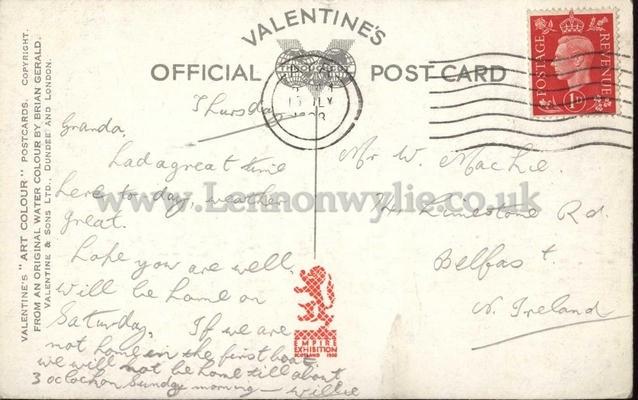 VALENTINE'S
OFFICIAL POST CARD
VALENTINE'S "ART COLOUR" POSTCARDS. COPYRIGHT.
FROM AN ORIGINAL WATER COLOUR BY BRIAN GERALD.
VALENTINE & SONS LTD., DUNDEE AND LONDON.
POSTAGE REVENUE
1D
Thursday
Granda,
Had a great time
here to day, weather
great.
Hope you are well.
will be home on
Saturday, If we are
not home in the first boat
we will not be home till about
3 oclock on Sunday morning — Willie
Mr W. Mackie.
Limestone Rd.
Belfast.
N. Ireland
EMPIRE
EXHIBITION
SCOTLAND 1938
www.Lennonwylie.co.uk